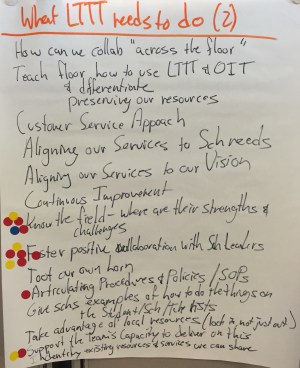 What LTTT needs to do (2)
How can we collab "across the floor"
Teach floor how to use LTTT & OIT
& differentiate
preserving our resources
Customer Service Appoach
Aligning our Services to Sch needs
Aligning our Services to our Vision
Continuous Improvement
Know the field - where are their strengths &
challenges
Foster positive collaboration with Sch Leaders
Toot our own horn
Articulating Procedures & Policies / SOPs
Give schs examples of how to do the things on
the Student/Sch/Tche lists
Take advantage of local resources (boot is not just out)
Support the Team's Capacity to deliver on this
Identify existing resources & services we can share